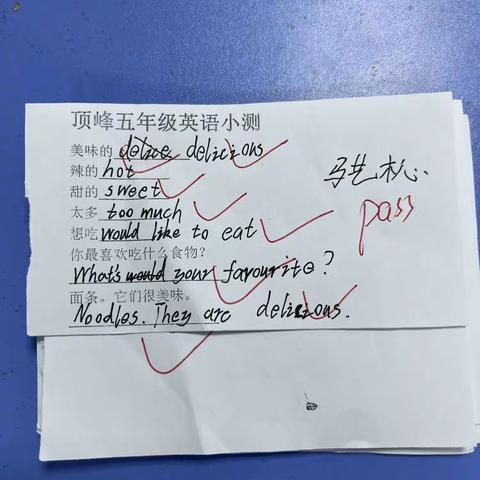 顶峰五年级英语小测
美味的 delice delicious
辣的 hot
甜的 sweet
太多 too much
想吃 would like to eat
你最喜欢吃什么食物?
What's would your favourite?
面条。它们很美味。
Noodles. They are delicious.
pass